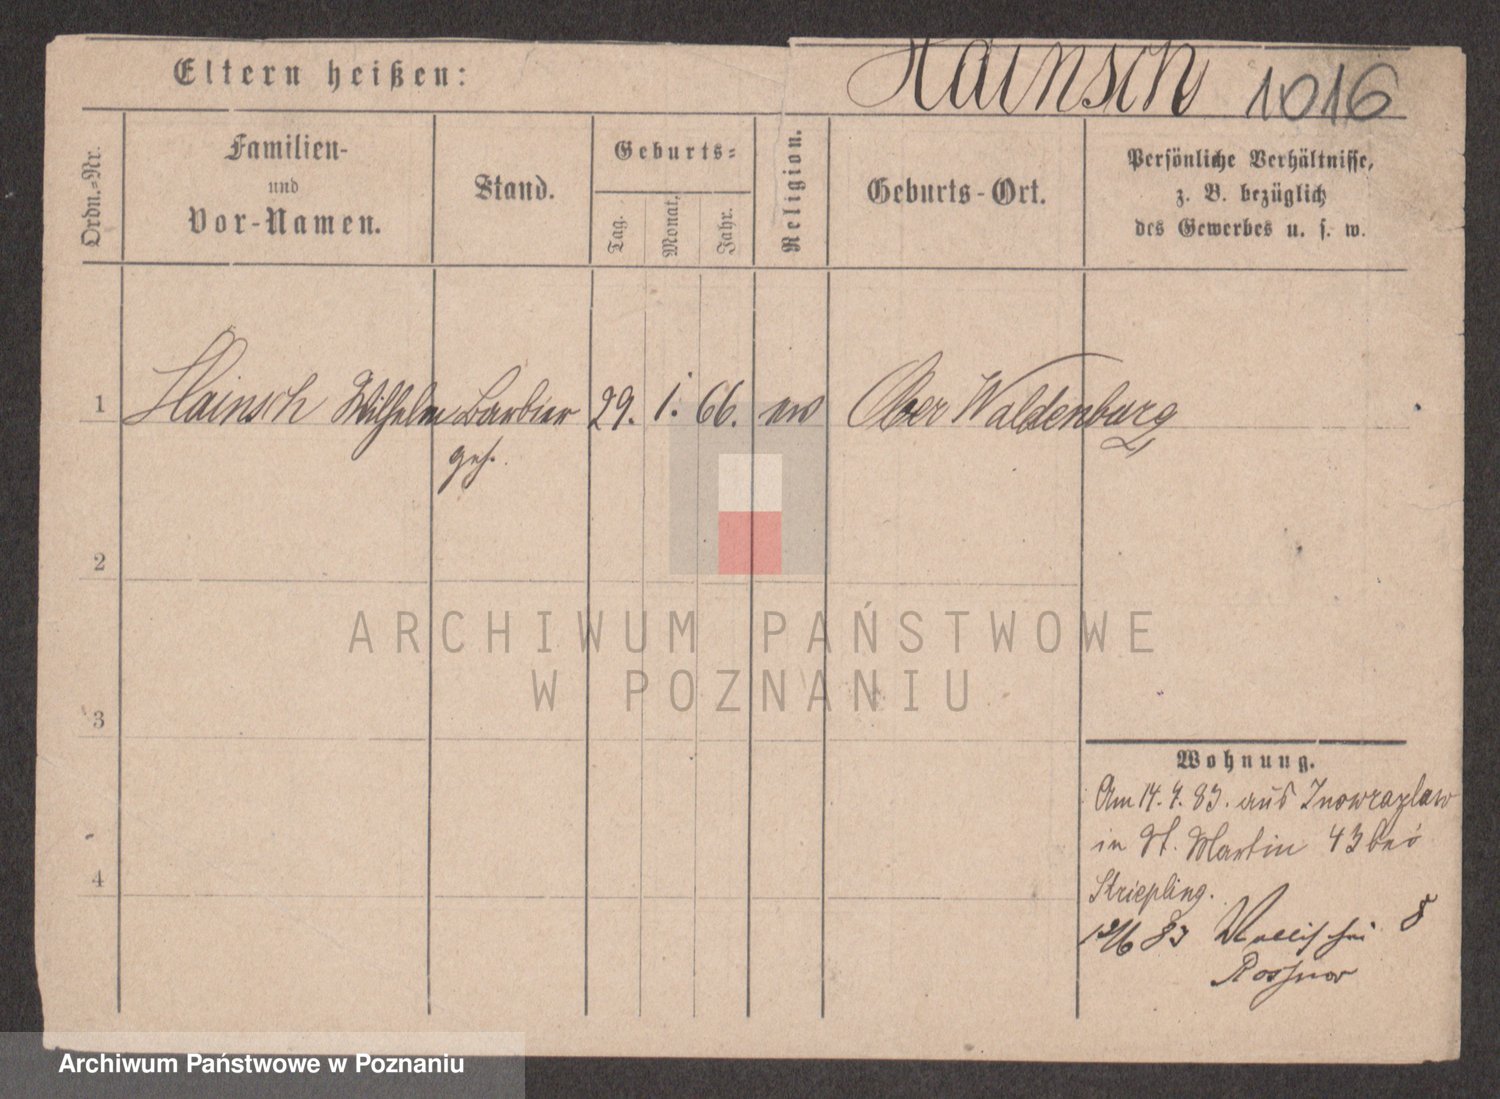 Eltern heißen:
Hainsch 1016
Ordn.=Nr.
Familien-
und
Vor-Namen.
Stand.
Geburts=
Tag.
Monat.
Jahr.
Religion.
Geburts-Ort.
Persönliche Verhältnisse,
z. B. bezüglich
des Gewerbes u. s. w.
1 Hainsch Wilhelm Barbier 29. 1. 66. ev Ober Waldenburg
geh.
2
3
4
Wohnung.
Am 14. 4. 83. aus Inowrazlaw
in St. Martin 43 bei
Striepling.
83 8
ARCHIWUM PAŃSTWOWE
W POZNANIU
Archiwum Państwowe w Poznaniu